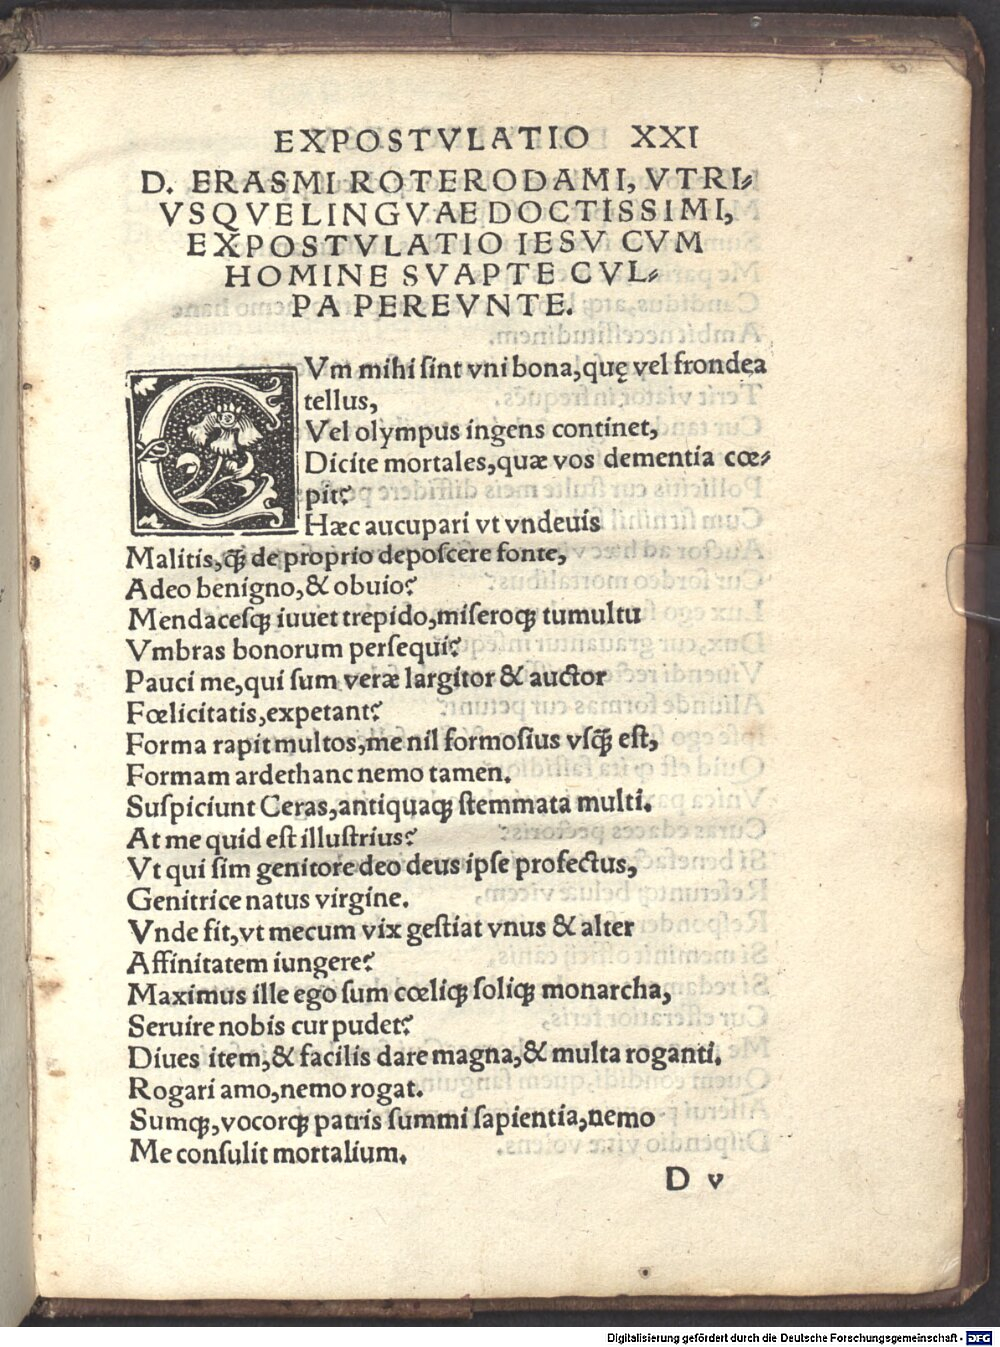 EXPOSTVLATIO XXI
D. ERASMI ROTERODAMI, VTRI-
VSQVE LINGVAE DOCTISSIMI,
EXPOSTVLATIO IESV CVM
HOMINE SVAPTE CVL-
PA PEREVNTE.
CVm mihi sint vni bona, quę vel frondea
tellus,
Vel olympus ingens continet,
Dicite mortales, quæ vos dementia cœ-
pit?
Hæc aucupari vt vndeuis
Malitis, q̃ȝ de proprio deposcere fonte,
Adeo benigno, & obuio?
Mendacesqȝ iuuet trepido, miseroqȝ tumultu
Vmbras bonorum persequi?
Pauci me, qui sum veræ largitor & auctor
Fœlicitatis, expetant?
Forma rapit multos, me nil formosius vsq̃ȝ est,
Formam ardet hanc nemo tamen.
Suspiciunt Ceras, antiquaqȝ stemmata multi.
At me quid est illustrius?
Vt qui sim genitore deo deus ipse profectus,
Genitrice natus virgine.
Vnde fit, vt mecum vix gestiat vnus & alter
Affinitatem iungere?
Maximus ille ego sum cœliqȝ soliqȝ monarcha,
Seruire nobis cur pudet?
Diues item, & facilis dare magna, & multa roganti.
Rogari amo, nemo rogat.
Sumqȝ, vocorqȝ patris summi sapientia, nemo
Me consulit mortalium.
D v
Digitalisierung gefördert durch die Deutsche Forschungsgemeinschaft - DFG